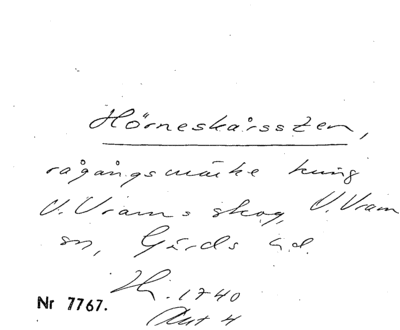 Hörneskärssten,
rågångsmärke kring
V. Vrams skog, V. Vram
sn, Gärds hd.
Hi. 1740
Akt 4
Nr 7767.